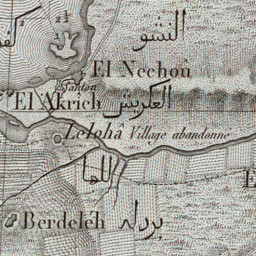 النشو
El Nechoû
Santon
El Akrich العكريش
Leloha Village abandonne
اللها
Berdeleh بردله
E